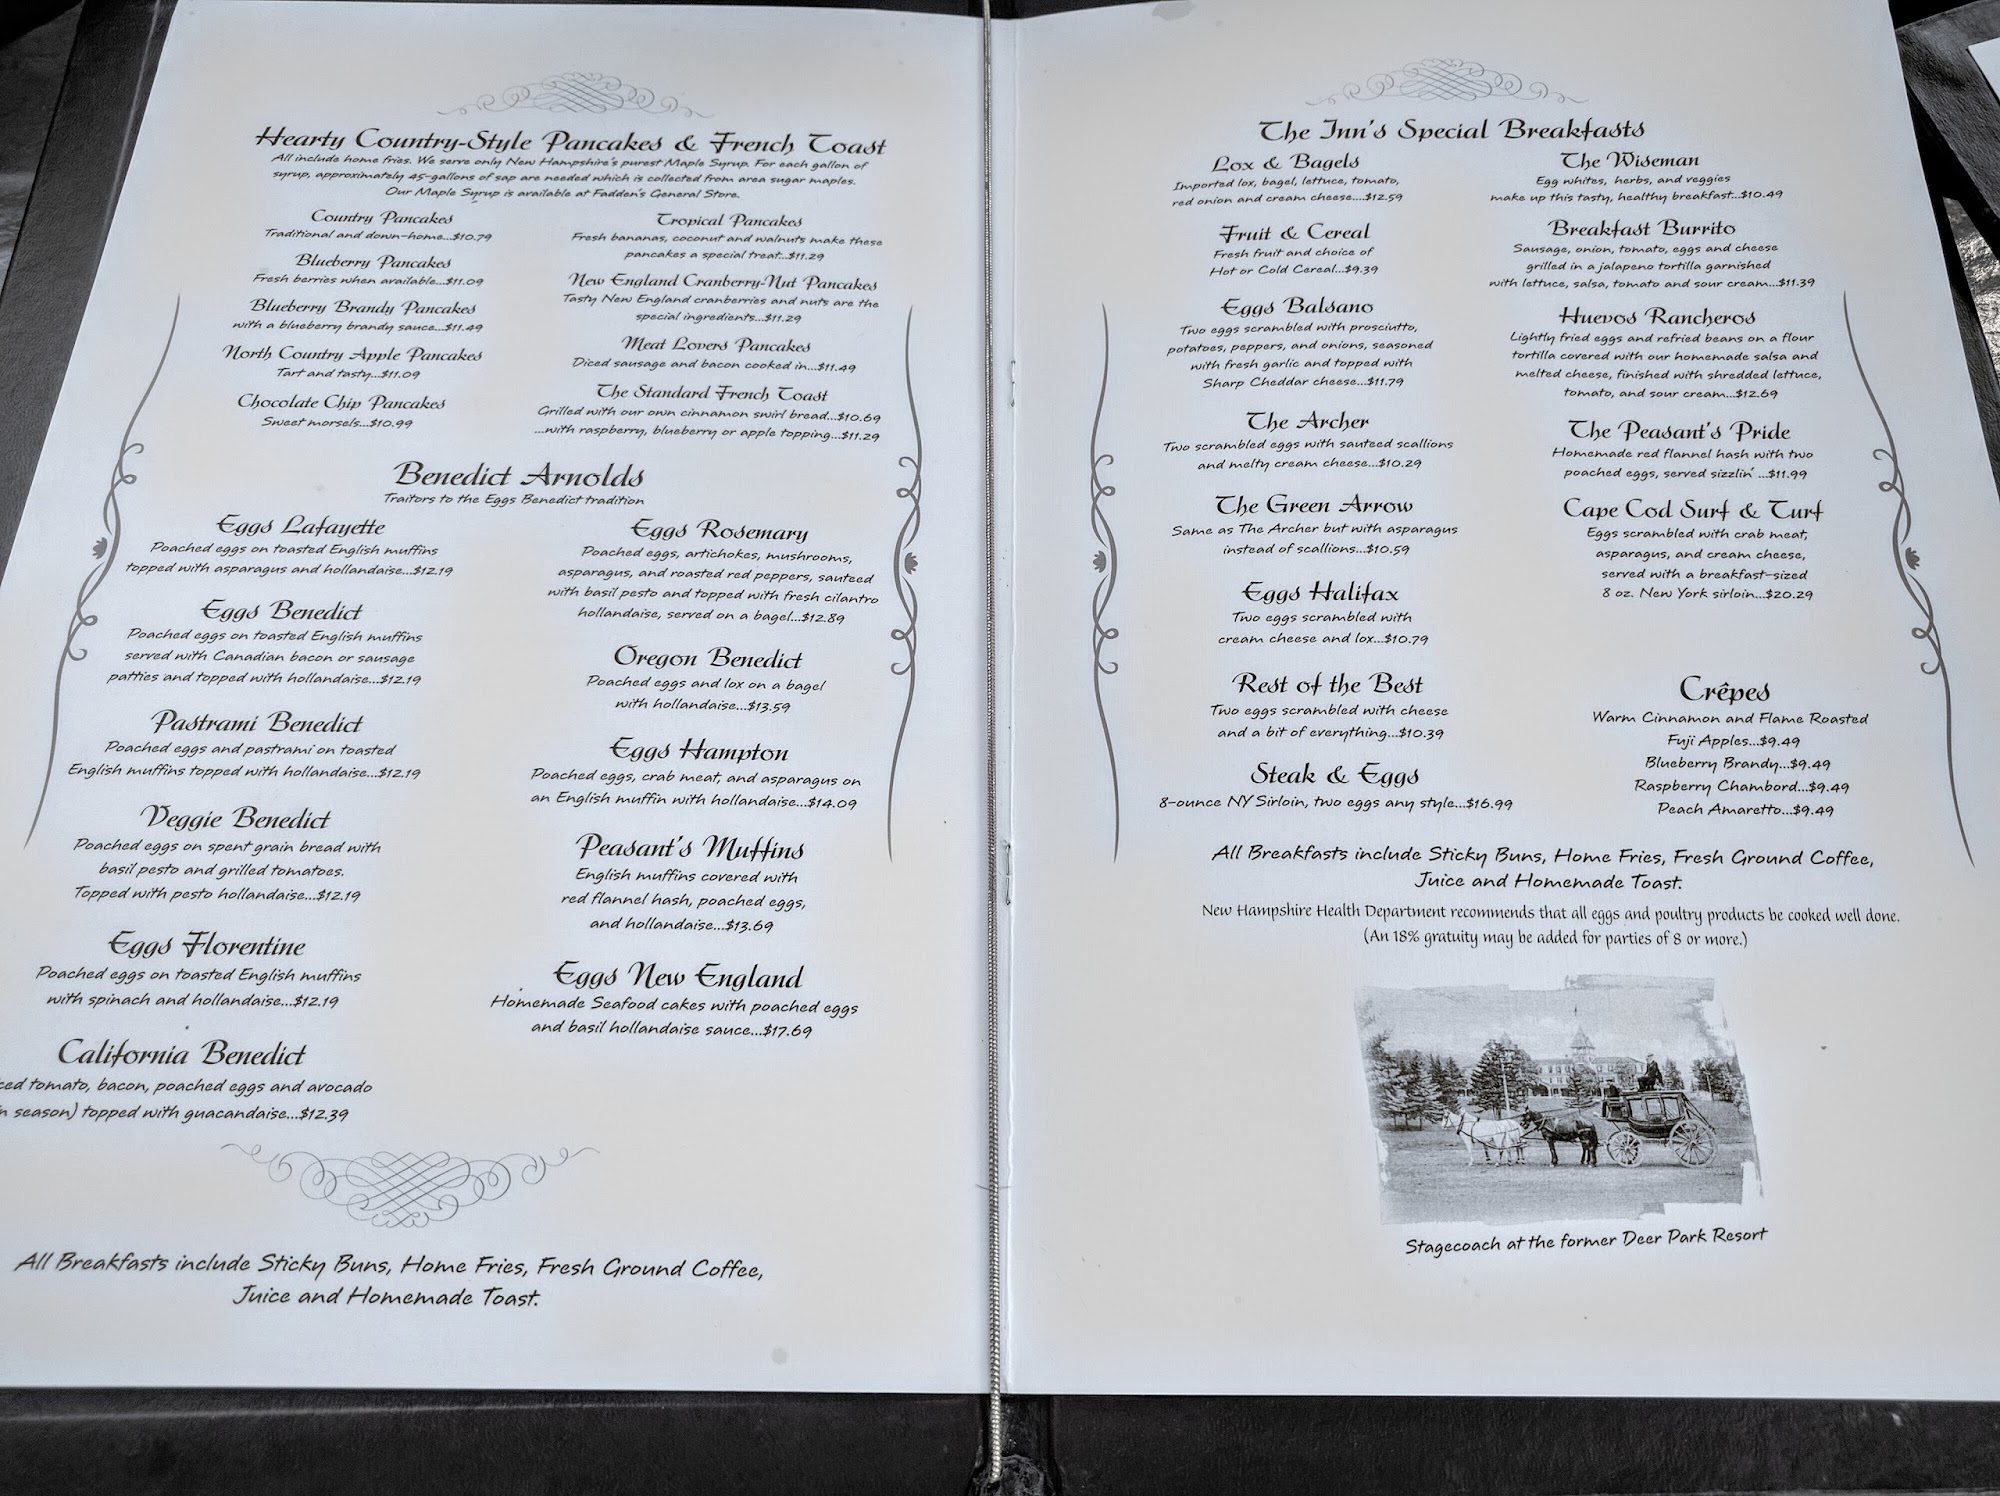 Hearty Country-Style Pancakes & French Toast
All include home fries. We serve only New Hampshire's purest Maple Syrup. For each gallon of
syrup, approximately 45-gallons of sap are needed which is collected from area sugar maples.
Our Maple Syrup is available at Fadden's General Store.
Country Pancakes
Traditional and down-home...$10.79
Blueberry Pancakes
Fresh berries when available...$11.09
Blueberry Brandy Pancakes
with a blueberry brandy sauce...$11.49
North Country Apple Pancakes
Tart and tasty...$11.09
Chocolate Chip Pancakes
Sweet morsels...$10.99
Tropical Pancakes
Fresh bananas, coconut and walnuts make these
pancakes a special treat...$11.29
New England Cranberry-Nut Pancakes
Tasty New England cranberries and nuts are the
special ingredients...$11.29
Meat Lovers Pancakes
Diced sausage and bacon cooked in...$11.49
The Standard French Toast
Grilled with our own cinnamon swirl bread...$10.69
...with raspberry, blueberry or apple topping...$11.29
Benedict Arnolds
Traitors to the Eggs Benedict tradition
Eggs Lafayette
Poached eggs on toasted English muffins
topped with asparagus and hollandaise...$12.19
Eggs Benedict
Poached eggs on toasted English muffins
served with Canadian bacon or sausage
patties and topped with hollandaise...$12.19
Pastrami Benedict
Poached eggs and pastrami on toasted
English muffins topped with hollandaise...$12.19
Veggie Benedict
Poached eggs on spent grain bread with
basil pesto and grilled tomatoes.
Topped with pesto hollandaise...$12.19
Eggs Florentine
Poached eggs on toasted English muffins
with spinach and hollandaise...$12.19
California Benedict
tomato, bacon, poached eggs and avocado
season) topped with guacandaise...$12.39
Eggs Rosemary
Poached eggs, artichokes, mushrooms,
asparagus, and roasted red peppers, sauteed
with basil pesto and topped with fresh cilantro
hollandaise, served on a bagel...$12.89
Oregon Benedict
Poached eggs and lox on a bagel
with hollandaise...$13.59
Eggs Hampton
Poached eggs, crab meat, and asparagus on
an English muffin with hollandaise...$14.09
Peasant's Muffins
English muffins covered with
red flannel hash, poached eggs,
and hollandaise...$13.69
Eggs New England
Homemade Seafood cakes with poached eggs
and basil hollandaise sauce...$17.69
All Breakfasts include Sticky Buns, Home Fries, Fresh Ground Coffee,
Juice and Homemade Toast.
The Inn's Special Breakfasts
Lox & Bagels
Imported lox, bagel, lettuce, tomato,
red onion and cream cheese....$12.59
Fruit & Cereal
Fresh fruit and choice of
Hot or Cold Cereal...$9.39
Eggs Balsano
Two eggs scrambled with prosciutto,
potatoes, peppers, and onions, seasoned
with fresh garlic and topped with
Sharp Cheddar cheese...$11.79
The Archer
Two scrambled eggs with sauteed scallions
and melty cream cheese...$10.29
The Green Arrow
Same as The Archer but with asparagus
instead of scallions...$10.59
Eggs Halifax
Two eggs scrambled with
cream cheese and lox...$10.79
Rest of the Best
Two eggs scrambled with cheese
and a bit of everything...$10.39
Steak & Eggs
8-ounce NY Sirloin, two eggs any style...$16.99
The Wiseman
Egg whites, herbs, and veggies
make up this tasty, healthy breakfast...$10.49
Breakfast Burrito
Sausage, onion, tomato, eggs and cheese
grilled in a jalapeno tortilla garnished
with lettuce, salsa, tomato and sour cream...$11.39
Huevos Rancheros
Lightly fried eggs and refried beans on a flour
tortilla covered with our homemade salsa and
melted cheese, finished with shredded lettuce,
tomato, and sour cream...$12.69
The Peasant's Pride
Homemade red flannel hash with two
poached eggs, served sizzlin' ...$11.99
Cape Cod Surf & Turf
Eggs scrambled with crab meat,
asparagus, and cream cheese,
served with a breakfast-sized
8 oz. New York sirloin...$20.29
Crêpes
Warm Cinnamon and Flame Roasted
Fuji Apples...$9.49
Blueberry Brandy...$9.49
Raspberry Chambord...$9.49
Peach Amaretto...$9.49
All Breakfasts include Sticky Buns, Home Fries, Fresh Ground Coffee,
Juice and Homemade Toast.
New Hampshire Health Department recommends that all eggs and poultry products be cooked well done.
(An 18% gratuity may be added for parties of 8 or more.)
Stagecoach at the former Deer Park Resort